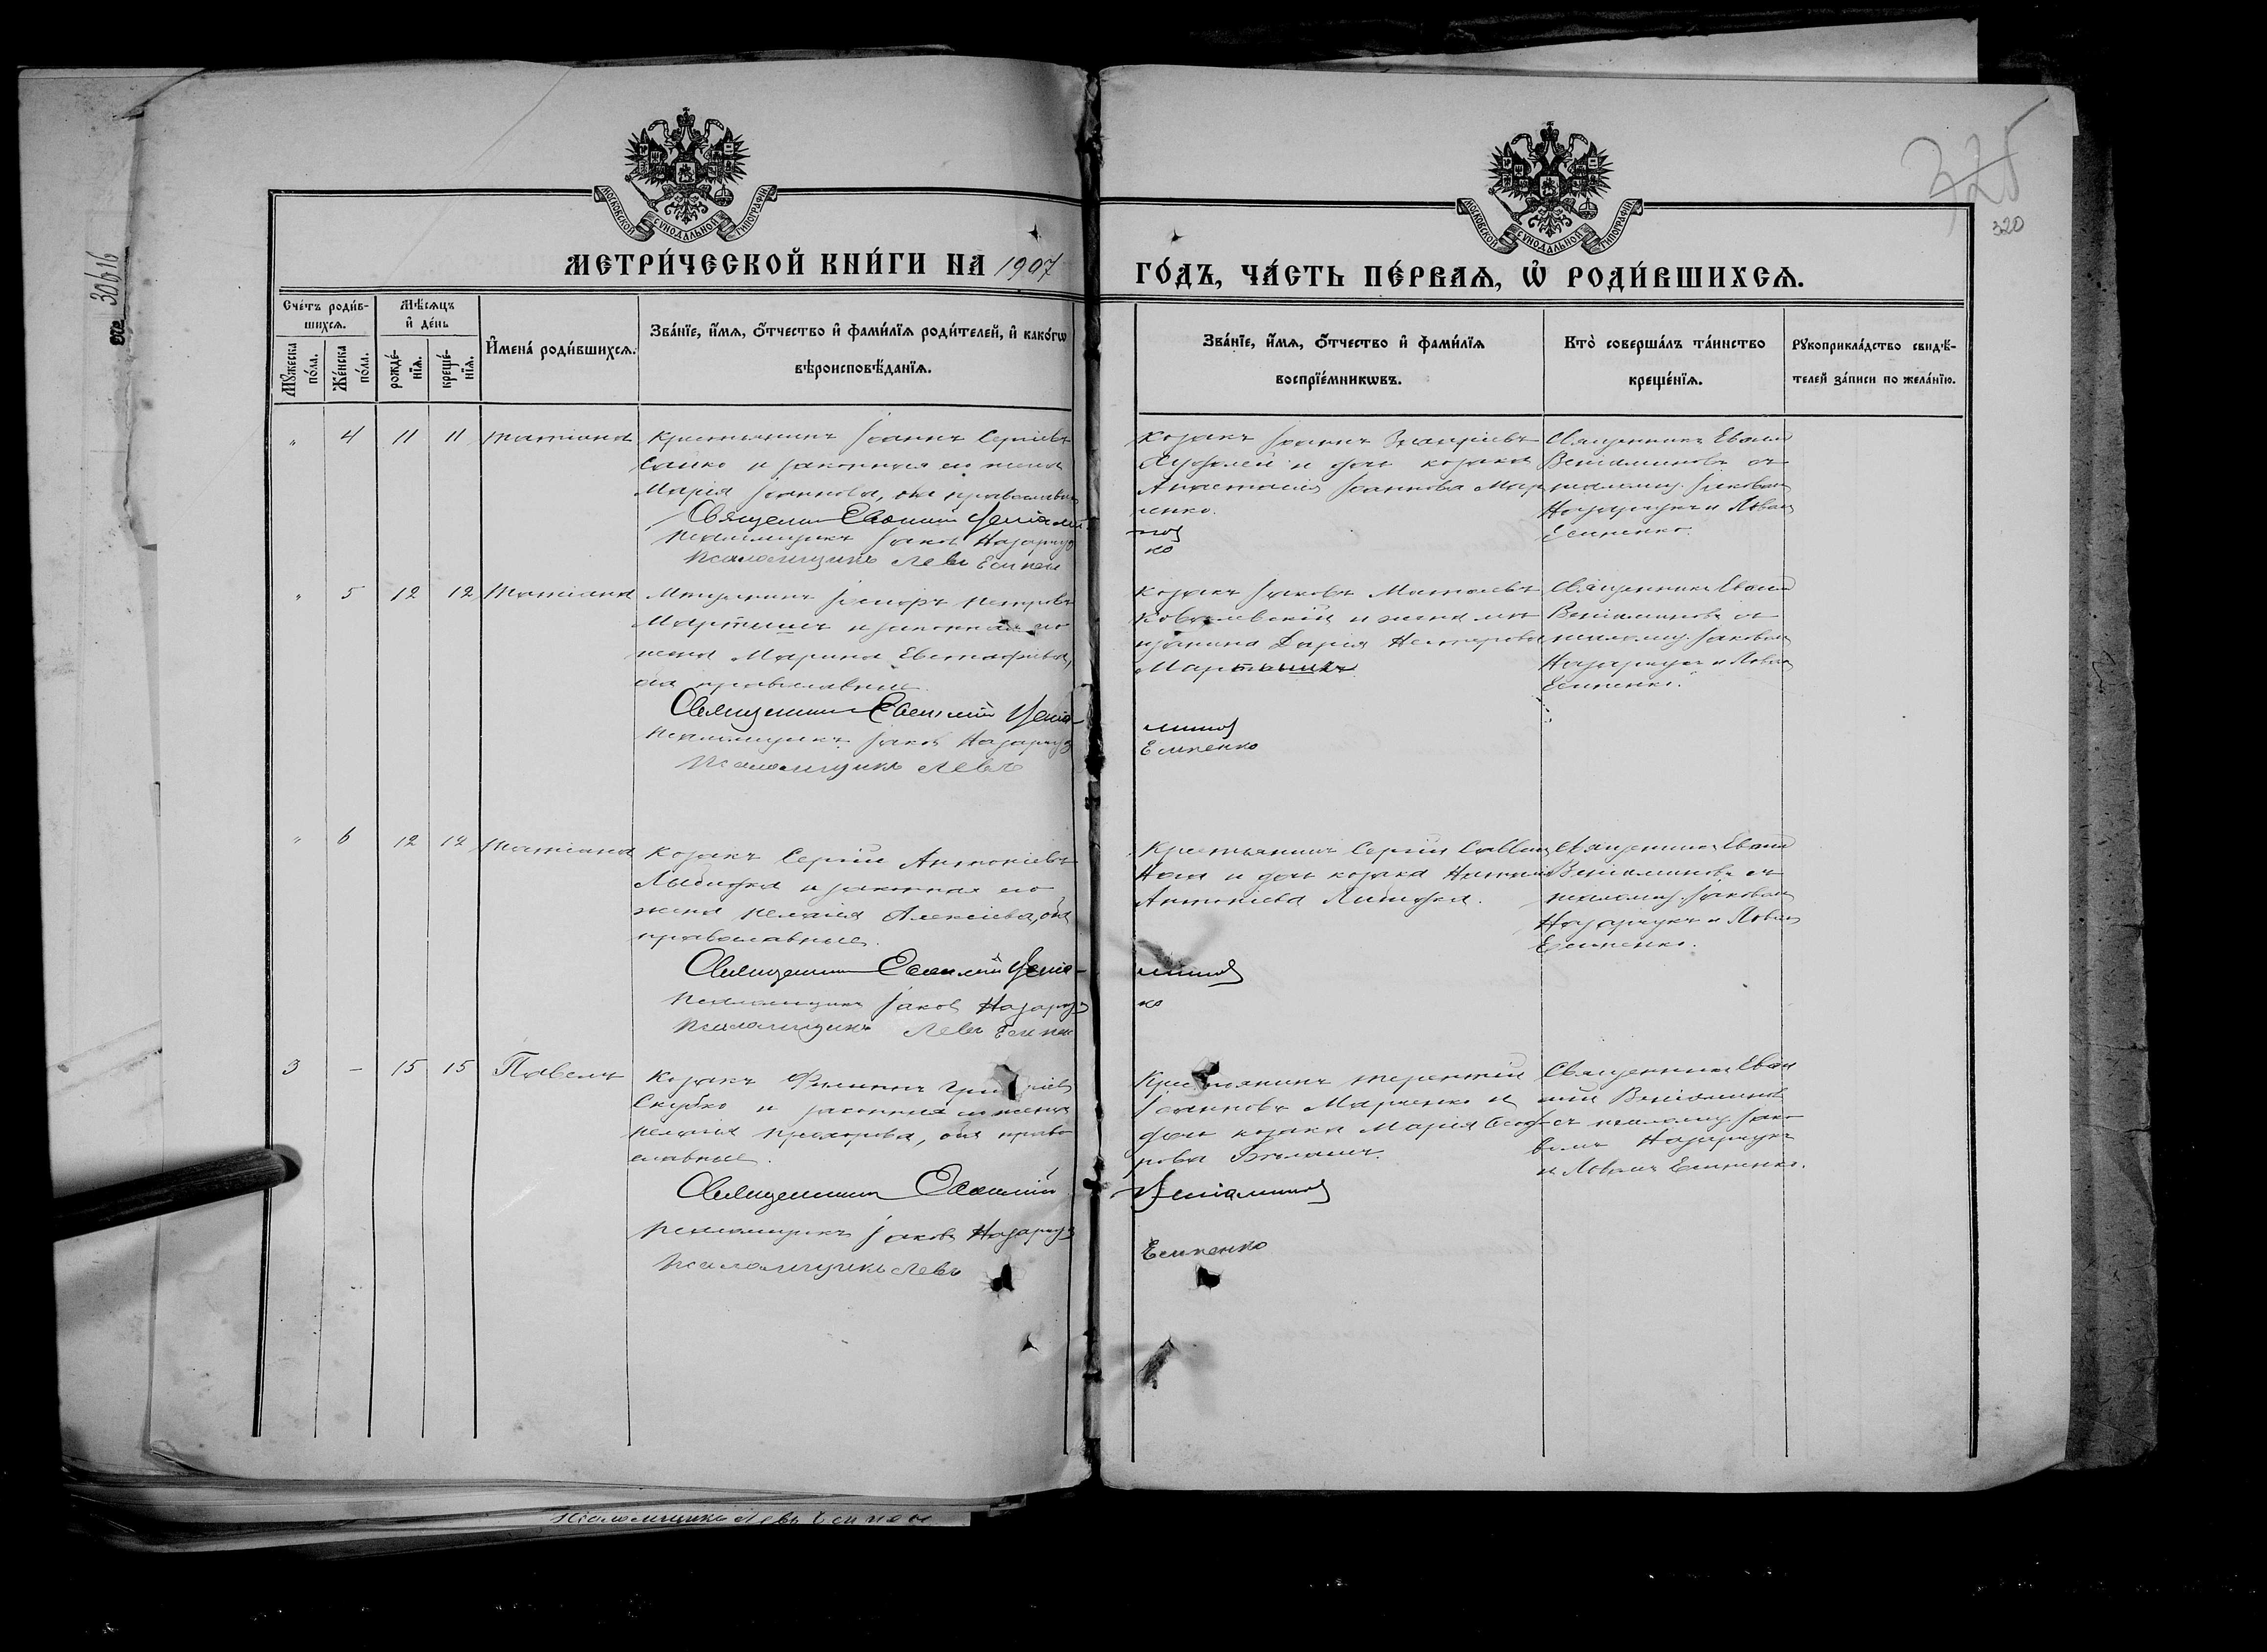 325
320
МОСКОВСКОЙ СѴНОДАЛЬНОЙ ТИПОГРАФІИ
МОСКОВСКОЙ СѴНОДАЛЬНОЙ ТИПОГРАФІИ
МЕТРИ́ЧЕСКОЙ КНИ́ГИ НА 1907
ГО́ДЪ, ЧА́СТЬ ПЕ́РВАѦ, Ѡ҆ РОДИ́ВШИХСѦ.
Сче́тъ роди́в-
шихсѧ.
Мꙋ́жеска по́ла.
Же́нска по́ла.
Мѣ́сѧцъ
и҆ де́нь
рожде́-нїѧ.
креще́-нїѧ.
И҆мена́ роди́вшихсѧ.
Зва́нїе, и҆́мѧ, ѻ҆́тчество и҆ фами́лїѧ роди́телей, и҆ како́гѡ
вѣроисповѣ́данїѧ.
Зва́нїе, и҆́мѧ, ѻ҆́тчество и҆ фами́лїѧ
воспрїе́мникѡвъ.
Кто̀ соверша́лъ та́инство
креще́нїѧ.
Рꙋкоприкла́дство свидѣ́-
телей за́писи по жела́нїю.
" 4 11 11 Татіана
Крестьянинъ Іоаннъ Сергіевъ
и законная его жена
Марія Іоаннова, оба православн
Псаломщикъ Іаковъ Назарчу
Псаломщикъ Левъ Есипен
Козакъ Іоаннъ
и дочь козака
Анастасія Іоаннова Мар
ченко.
нов
ко
Священникъ Евѳим
Веніаминовъ съ
псаломщ. Іаковомъ
Назарчукъ и Львомъ
Есипенко.
" 5 12 12 Татіана
Мѣщанинъ Петровъ
Мартышъ и законная его
жена Марина Евстафіева,
оба православные.
Священникъ Евѳимій Веніа-
Псаломщикъ Іаковъ Назарчу
Псаломщикъ Левъ
Козакъ Іаковъ Матѳеевъ
Ковалевскій и жена мѣ
щанина Дарія Несторова
Мартышъ
минов
Есипенко
Священникъ Евѳим
Веніаминовъ съ
псаломщ. Іаковомъ
Назарчукъ и Львомъ
Есипенко.
" 6 12 12 Татіана
Козакъ Сергій Антоніевъ
и законная его
жена Пелагія Алексіева, оба
православные.
Священникъ Евѳимій Веніа-
Псаломщикъ Іаковъ Назарчу
Псаломщикъ Левъ Есипен
Крестьянинъ Сергій Саввинъ
и дочь козака
Антоніева
минов
ко
Священникъ Евѳим
Веніаминовъ съ
псаломщ. Іаковомъ
Назарчукъ и Львомъ
Есипенко.
3 – 15 15 Павелъ
Козакъ Филиппъ
Скубко и законная его жена
Пелагія Прохорова, оба право
славные.
Священникъ Евѳимій
Псаломщикъ Іаковъ Назарчу
Псаломщикъ Левъ
Крестьянинъ Терентій
Іоанновъ Марченко и
дочь козака Марія Ѳеод
рова
Веніаминов
Есипенко
Священникъ Евѳи
мій Веніаминовъ
съ псаломщ. Іако
вомъ Назарчукъ
и Львомъ Есипенко.
Псаломщикъ Левъ Есипен